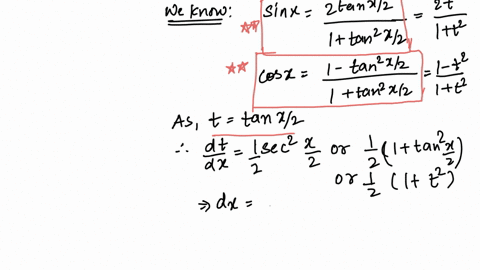 We know: ** sinx = 2tanx/2 / 1+tan²x/2 = 2t / 1+t²
** cosx = 1-tan²x/2 / 1+tan²x/2 = 1-t² / 1+t²
As, t = tanx/2
∴ dt/dx = 1/2 sec² x/2 or 1/2 (1+tan² x/2)
or 1/2 (1+t²)
⇒ dx =